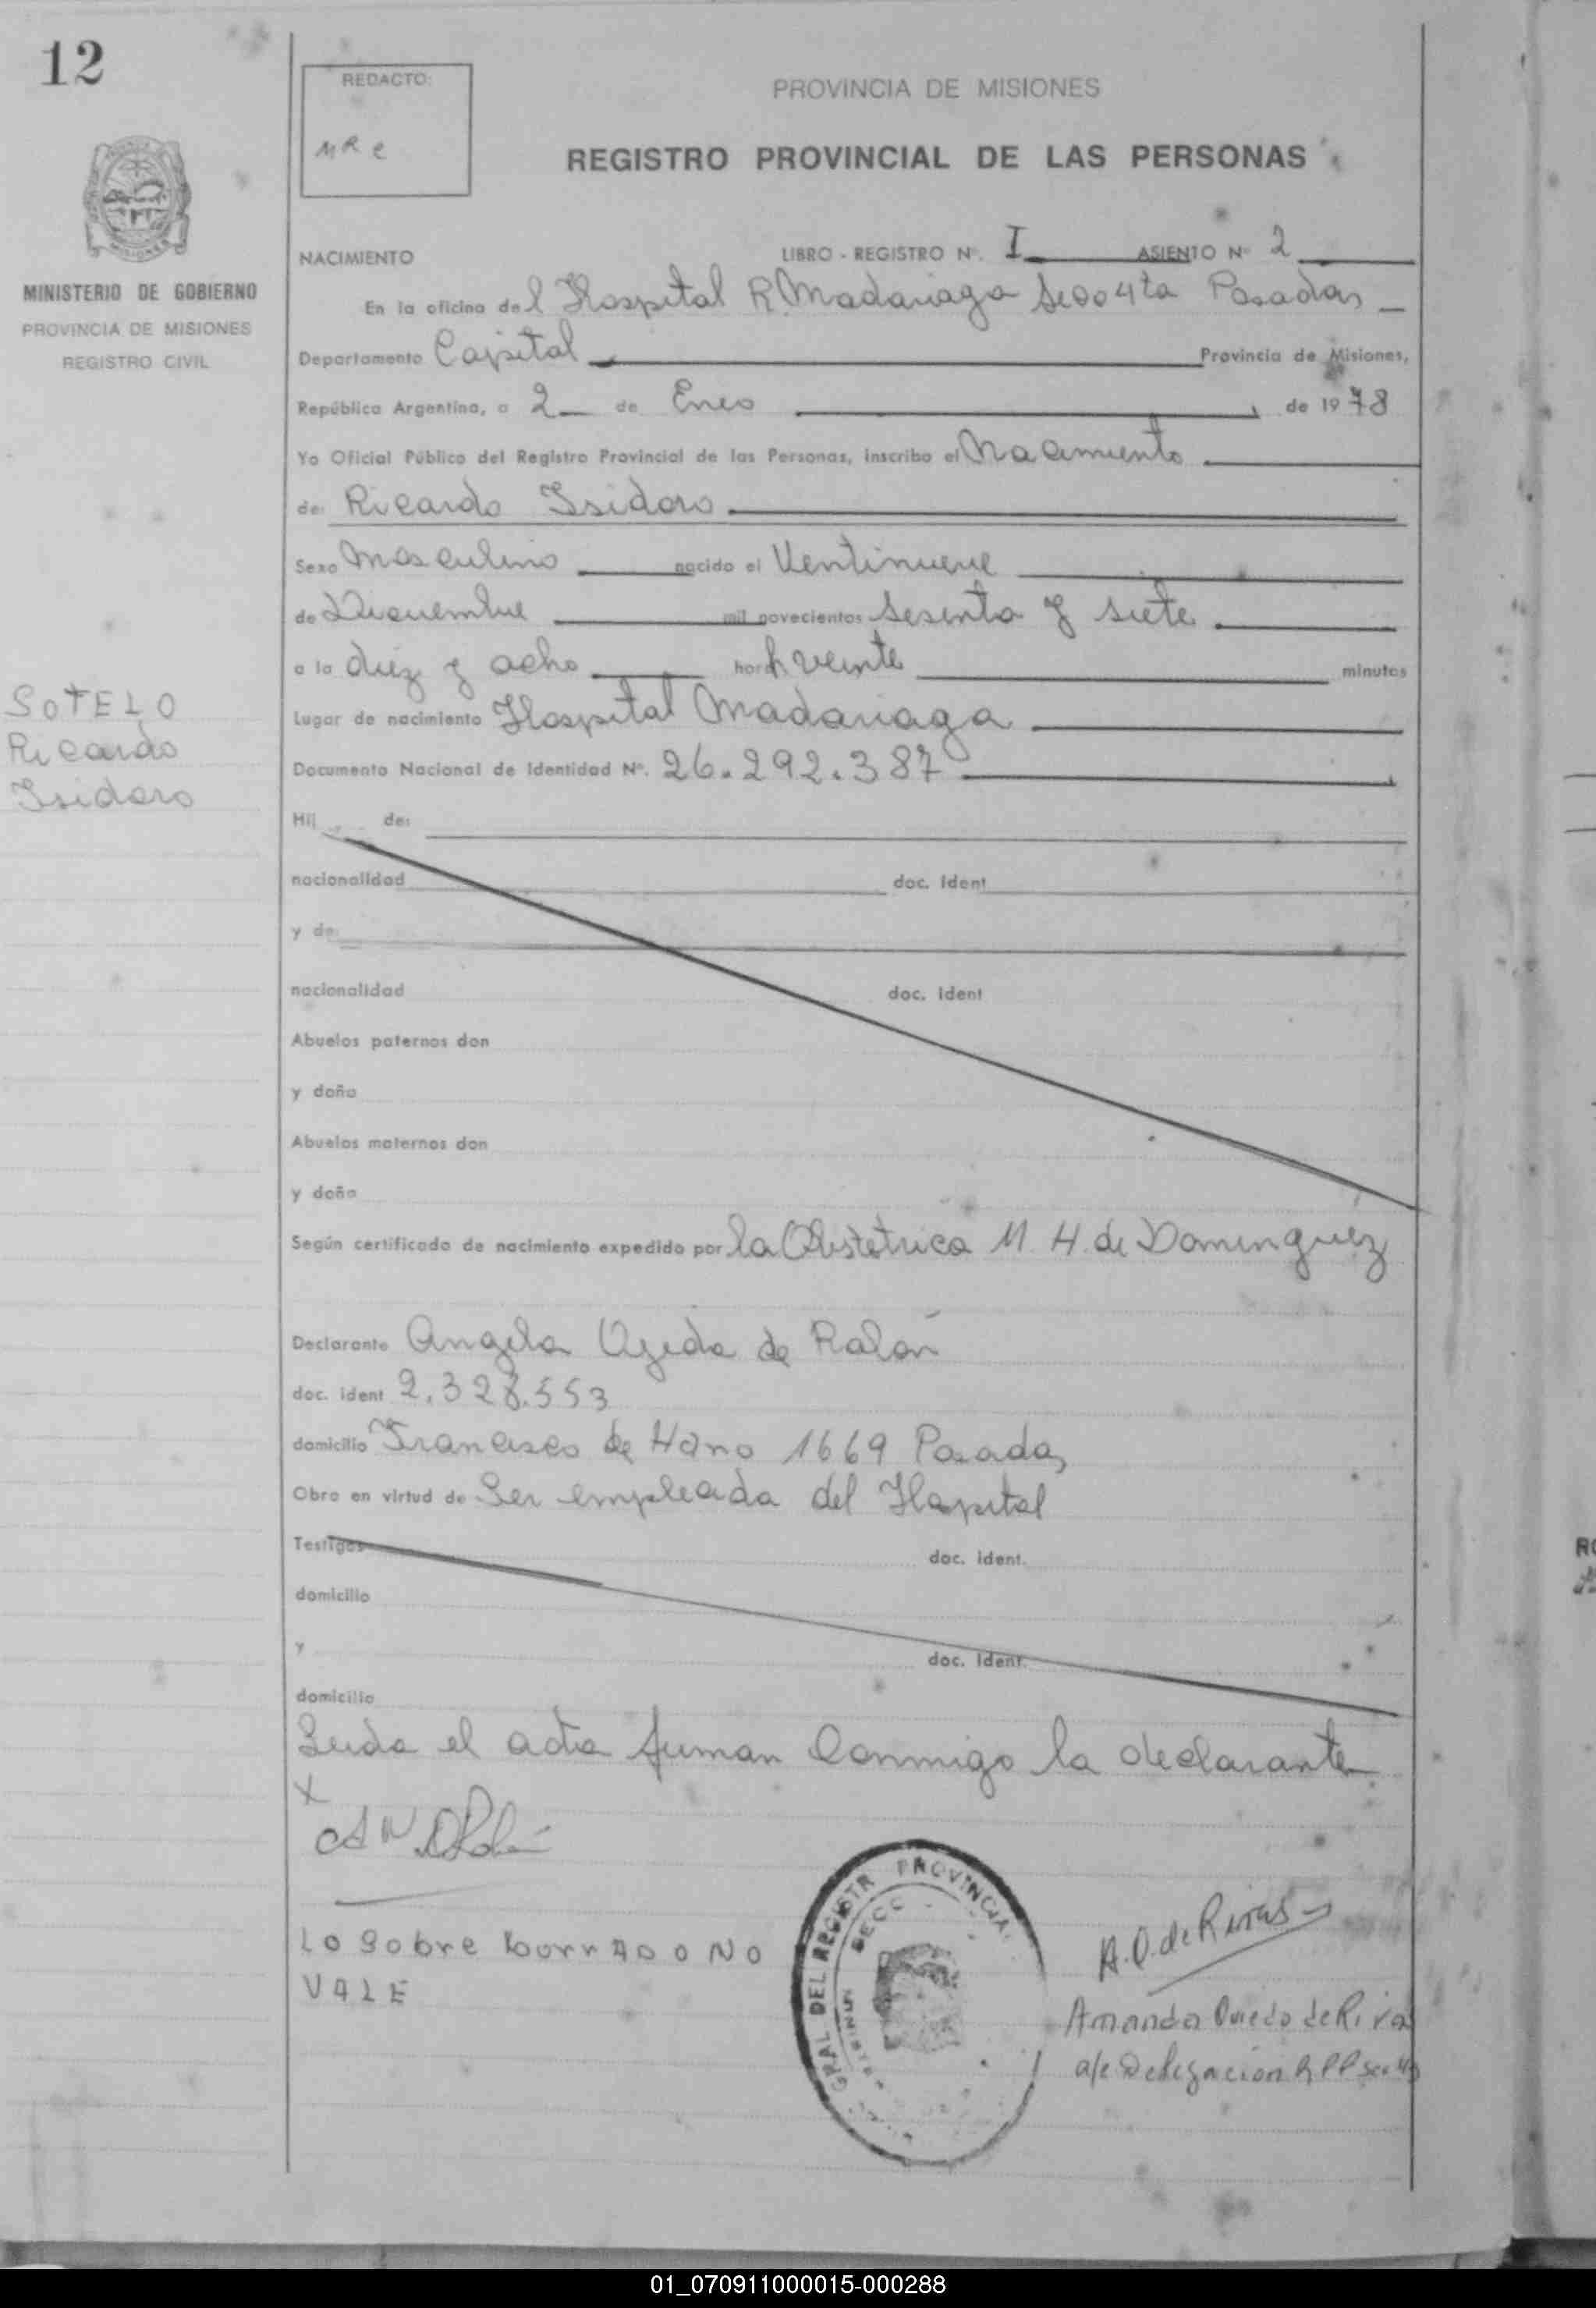 12
REDACTO:
MRC
PROVINCIA DE MISIONES
REGISTRO PROVINCIAL DE LAS PERSONAS
MINISTERIO DE GOBIERNO
PROVINCIA DE MISIONES
REGISTRO CIVIL
NACIMIENTO LIBRO - REGISTRO Nº. I ASIENTO Nº 2
En la oficina del Hospital R. Madariaga Secc 4ta Posadas
Departamento Capital Provincia de Misiones,
República Argentina, a 2 de Enero de 1978
Yo Oficial Público del Registro Provincial de las Personas, inscribo el Nacimiento
de: Ricardo Isidoro
Sexo Masculino nacido el Ventinueve
de Diciembre mil novecientos sesenta y siete
a la diez y ocho hora veinte minutos
SOTELO
Ricardo
Isidoro
Lugar de nacimiento Hospital Madariaga
Documento Nacional de Identidad Nº. 26.292.387
Hij de:
nacionalidad doc. ident
y de:
nacionalidad doc. ident
Abuelos paternos don
y doña
Abuelos maternos don
y doña
Según certificado de nacimiento expedido por la Obstetrica M. H. de Dominguez
Declarante Angela Ojeda de Ralón
doc. ident 2.328.553
domicilio Francisco de Haro 1669 Posadas
Obra en virtud de Ser empleada del Hospital
Testigos doc. ident.
domicilio
y doc. ident.
domicilio
Leida el acta firman conmigo la declarante
X
Lo sobre borrado no
VALE
GRAL DEL REGISTR PROVINCIAL
SECC
A.O. de Rivas
Amanda Oviedo de Rivas
a/c Delegación RPP Sec 4ta
01_070911000015-000288